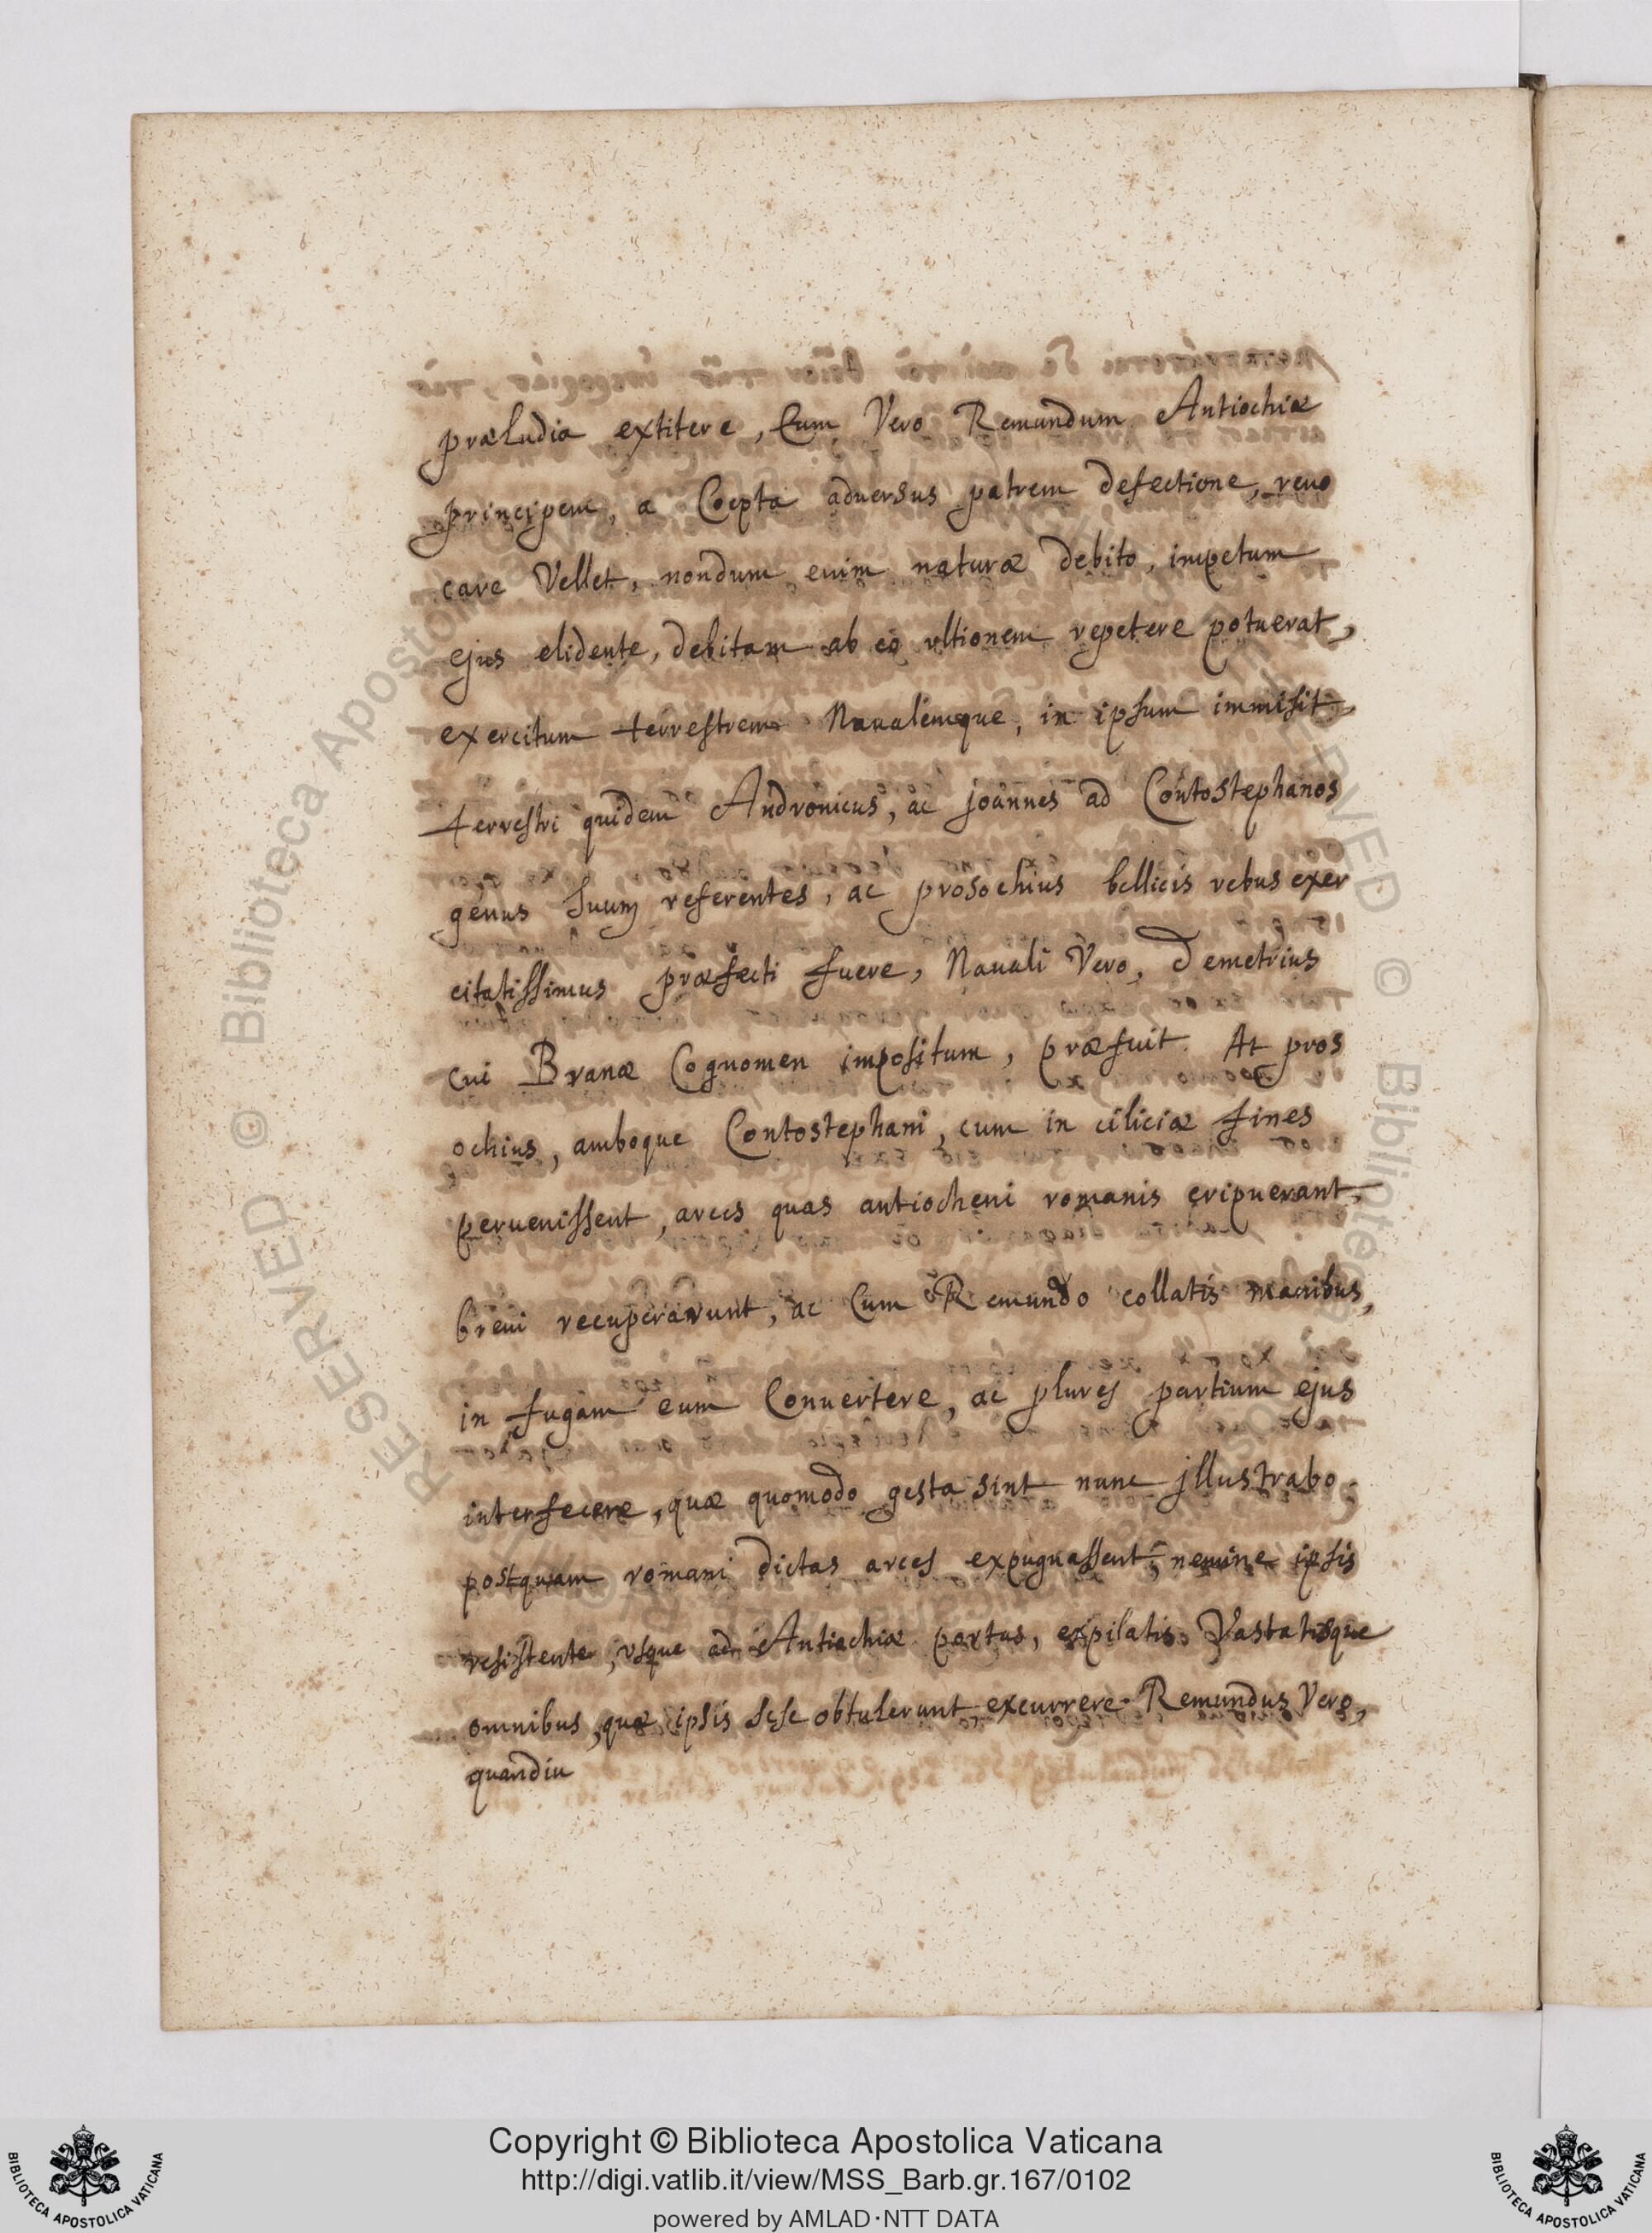 præludia extitere, Cum Vero Remundum Antiochiæ
principem, a Coepta aduersus patrem defectione, reuo
care Vellet, nondum enim naturæ debito, impetum
ejus elidente, debitam ab eo vltionem repetere potuerat,
exercitum terrestrem Naualemque, in ipsum immisit,
terrestri quidem Andronicus, ac joannes ad Contostephanos
genus suum referentes, ac prosochius bellicis rebus exer
citatissimus præfecti fuere, Nauali Vero, Demetrius
cui Branæ Cognomen impositum, præfuit. At pros
ochius, amboque Contostephani, cum in ciliciæ fines
peruenissent, arces quas antiocheni romanis eripuerant,
breui recuperarunt, ac Cum Remundo collatis manibus,
in fugam eum Conuertere, ac plures partium ejus
interfecere, quæ quomodo gesta sint nunc jllustrabo.
postquam romani dictas arces expugnassent, nemine ipsis
resistente, vsque ad Antiochiæ portas, expilatis Vastatisque
omnibus, quæ ipsis sese obtulerunt excurrere. Remundus Vero,
quandiu
RESERVED © Biblioteca Apostolica Vaticana
Copyright © Biblioteca Apostolica Vaticana
http://digi.vatlib.it/view/MSS_Barb.gr.167/0102
powered by AMLAD·NTT DATA
BIBLIOTECA APOSTOLICA VATICANA
BIBLIOTECA APOSTOLICA VATICANA